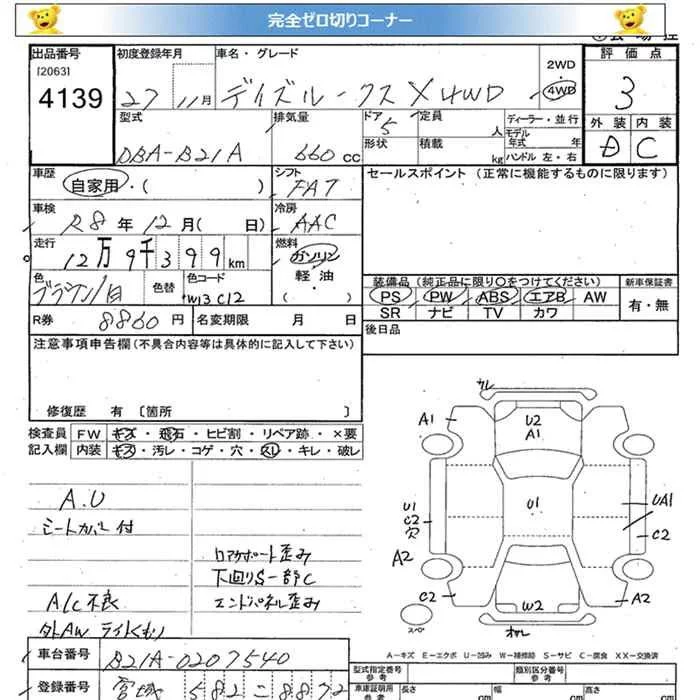 完全ゼロ切りコーナー
出品番号 初度登録年月 車名・グレード 2WD ・ 4WD 評価点
[2063]
4139 27 11月 デイズルークス X 4WD 3
型式 排気量 ドア 5 定員 人 ディーラー・並行 外装 内装
DBA-B21A 660 cc 形状 積載 kg モデル年式 年 ハンドル 左・右 D C
車歴 自家用・( ) シフト FAT セールスポイント (正常に機能するものに限ります)
車検 R8 年 12 月( 日) 冷房 AAC
走行 12万9千399 km 燃料 ガソリン 軽油 ( )
色 色替 色コード W13 C12
装備品 (純正品に限り○をつけてください) 新車保証書
PS PW ABS エアB AW 有・無
SR ナビ TV カワ
R券 8860 円 名変期限 月 日 後日品
注意事項申告欄(不具合内容等は具体的に記入して下さい)
修復歴 有 〔箇所 〕
検査員 FW キズ・飛石・ヒビ割・リペア跡・×要
記入欄 内装 キズ・汚レ・コゲ・穴・スレ・キレ・破レ
A.U
シートカバー付
A/C不良
外AW ライトくもり
ロアサポート歪み
下回りS一部C
エンドパネル歪み
ワレ
A1 U2
A1
U1 U1 UA1
C2
穴 C2
A2
C2 W2 A2
スペア
A-キズ E-エクボ U-凹み W-補修跡 S-サビ C-腐食 XX-交換済
車台番号 B21A-0207540 型式指定番号 参考 類別区分番号 参考
登録番号 宮城 582 こ 8872 車庫証明用 参考 長さ cm 幅 cm 高さ cm